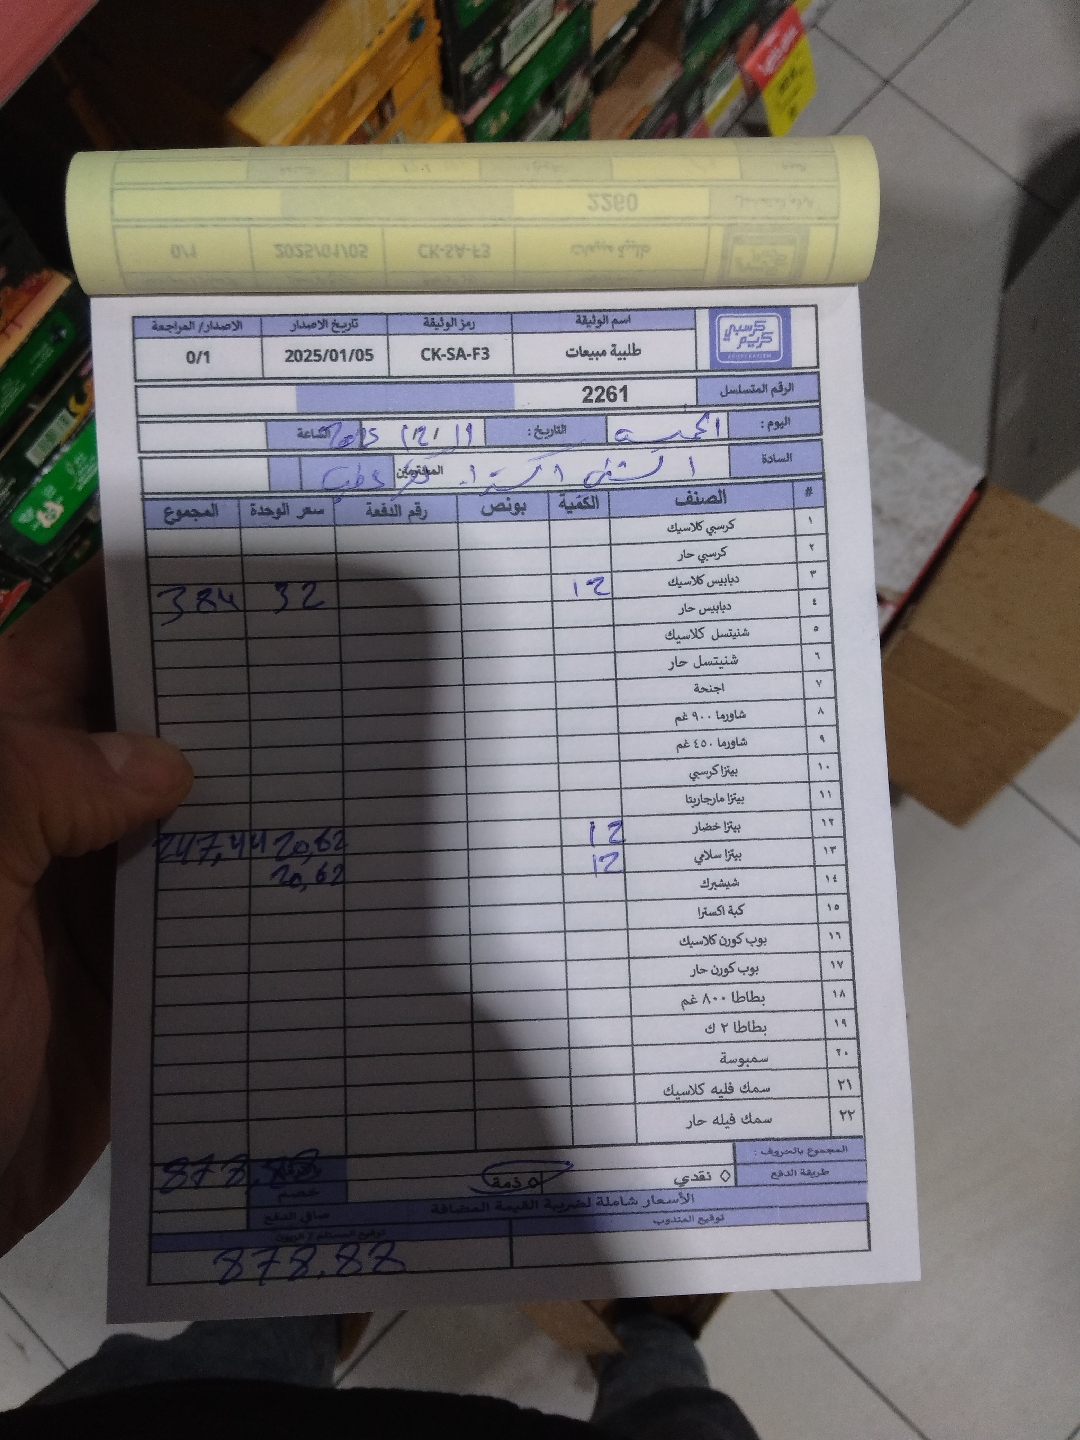 اسم الوثيقة رمز الوثيقة تاريخ الاصدار الاصدار/ المراجعة
كرسبي كريم
طلبية مبيعات CK-SA-F3 2025/01/05 0/1
الرقم المتسلسل 2261
اليوم : الخميس التاريخ : الساعة
السادة المحترمين
# الصنف الكمية بونص رقم الدفعة سعر الوحدة المجموع
١ كرسبي كلاسيك
٢ كرسبي حار
٣ دبابيس كلاسيك 12 32 384
٤ دبابيس حار
٥ شنيتسل كلاسيك
٦ شنيتسل حار
٧ اجنحة
٨ شاورما ٩٠٠ غم
٩ شاورما ٤٥٠ غم
١٠ بيتزا كرسبي
١١ بيتزا مارجاريتا
١٢ بيتزا خضار 12 20,62 247,44
١٣ بيتزا سلامي 12 20,62
١٤ شيشبرك
١٥ كبة اكسترا
١٦ بوب كورن كلاسيك
١٧ بوب كورن حار
١٨ بطاطا ٨٠٠ غم
١٩ بطاطا ٢ ك
٢٠ سمبوسة
٢١ سمك فليه كلاسيك
٢٢ سمك فيله حار
المجموع بالحروف : 878,88
طريقة الدفع نقدي ذمة خصم
الأسعار شاملة لضريبة القيمة المضافة صافي الدفع
توقيع المندوب توقيع المستلم / الزبون
878.88